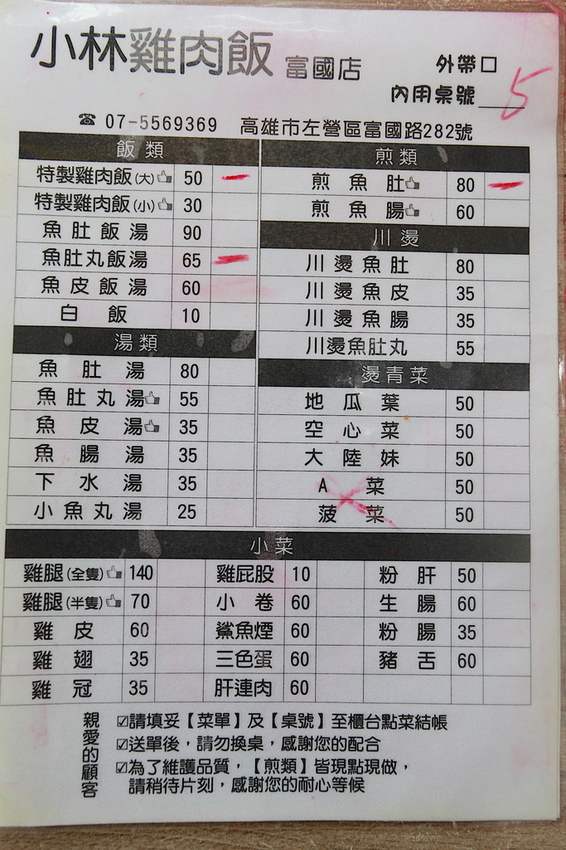 小林雞肉飯 富國店
外帶□
內用桌號 5
☎ 07-5569369 高雄市左營區富國路282號
飯類
特製雞肉飯(大) 50
特製雞肉飯(小) 30
魚肚飯湯 90
魚肚丸飯湯 65
魚皮飯湯 60
白飯 10
湯類
魚肚湯 80
魚肚丸湯 55
魚皮湯 35
魚腸湯 35
下水湯 35
小魚丸湯 25
煎類
煎魚肚 80
煎魚腸 60
川燙
川燙魚肚 80
川燙魚皮 35
川燙魚腸 35
川燙魚肚丸 55
燙青菜
地瓜葉 50
空心菜 50
大陸妹 50
A菜 50
菠菜 50
小菜
雞腿(全隻) 140 雞屁股 10 粉肝 50
雞腿(半隻) 70 小卷 60 生腸 60
雞皮 60 鯊魚煙 60 粉腸 35
雞翅 35 三色蛋 60 豬舌 60
雞冠 35 肝連肉 60
親愛的顧客
☑請填妥【菜單】及【桌號】至櫃台點菜結帳
☑送單後，請勿換桌，感謝您的配合
☑為了維護品質，【煎類】皆現點現做，
請稍待片刻，感謝您的耐心等候